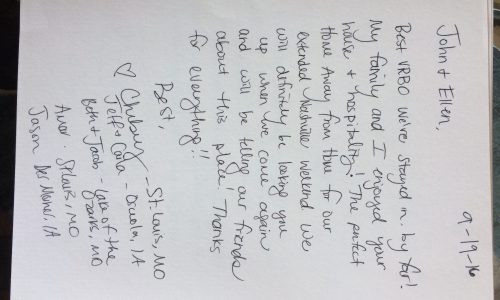 9-19-16
John + Ellen,
Best VRBO we've stayed in by far!
My family and I enjoyed your
house + hospitality! The perfect
Home Away from Home for our
extended Nashville weekend. We
will definitely be looking you
up when we come again
and will be telling our friends
about this place! Thanks
for everything!!
Best,
♡ - St. Louis, MO
Jeff + - , IA
Beth + Jacob - Lake of the
Ozarks, MO
St. Louis, MO
Jason Des Moines, IA